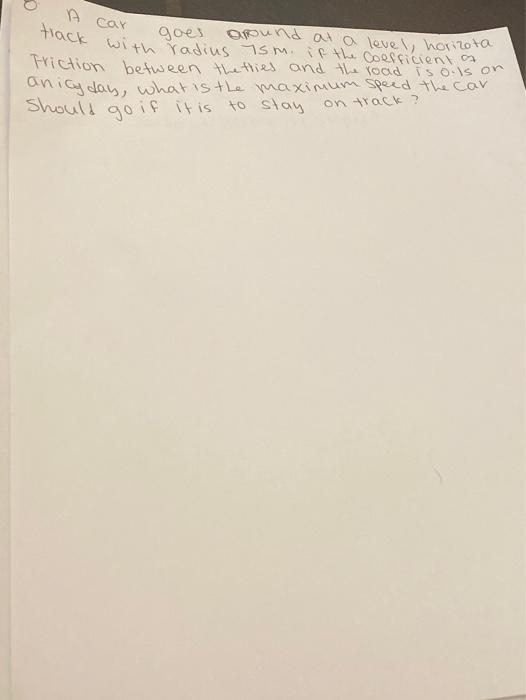 A car goes around at a level, horizota
track with radius 75m. if the coefficient of
Friction between the thies and the road is 0.15 on
an icy day, what is the maximum speed the car
Should go if it is to stay on track?